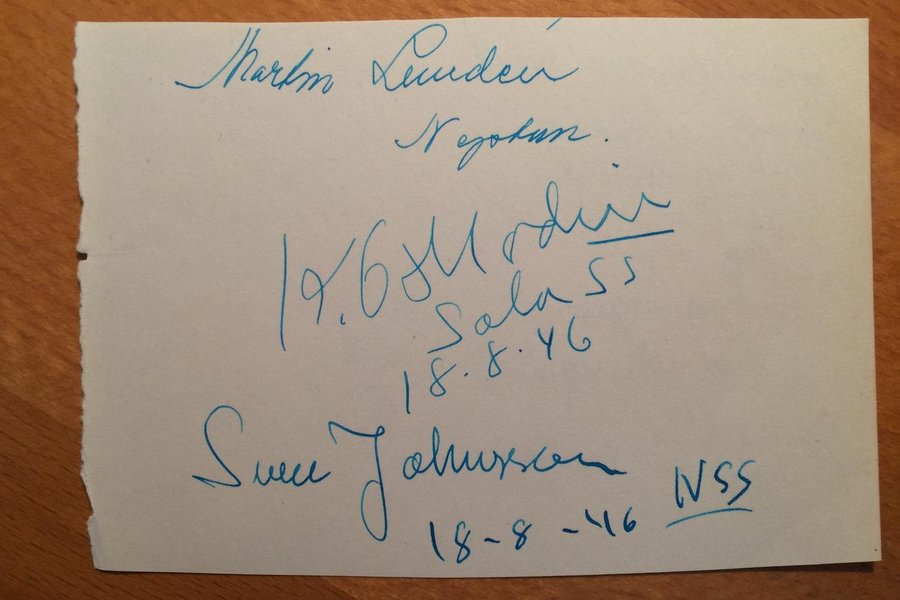 Martin Lundén
Neptun.
K.G. Nordin
Sala SS
18.8.46
Sven Johnsson
18-8-46 NSS